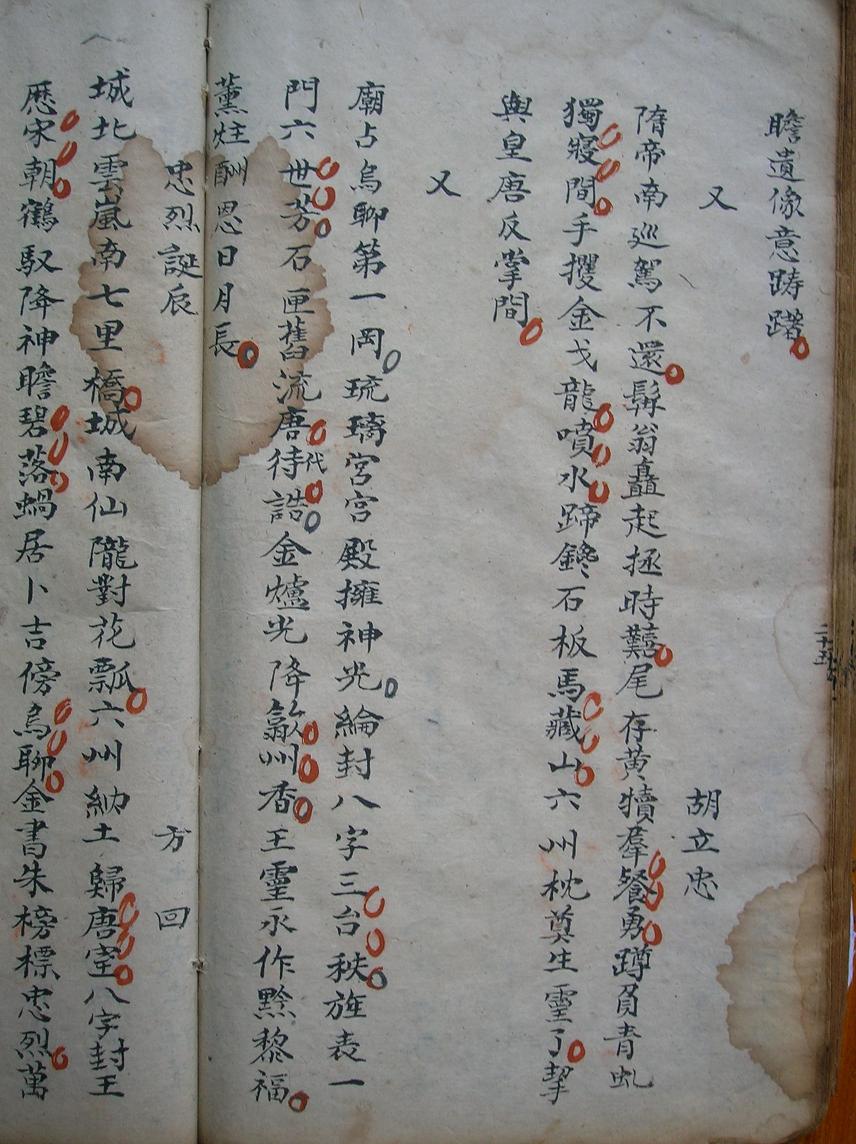 瞻遺像意踌躇
又
胡立忠
隋帝南巡駕不還髯翁矗起拯時艱尾存黃犢羣餐勇蹲負青虬
獨寢間手攫金戈龍噴水蹄鑱石板馬藏山六州枕奠生靈了挈
與皇唐反掌間
又
廟占烏聊第一岡琉璃宮宮殿擁神光綸封八字三台秩旌表一
門六世芳石匣舊流唐待代誥金爐光降歙州香王靈永作黟黎福
薰炷酬恩日月長
忠烈誕辰
方回
城北雲嵐南七里橋城南仙隴對花瓢六州納土歸唐室八字封王
歷宋朝鶴馭降神瞻碧落蝸居卜吉傍烏聊金書朱榜標忠烈萬